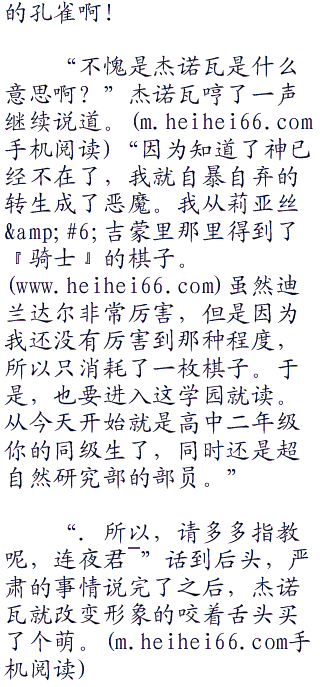 的孔雀啊！
“不愧是杰诺瓦是什么
意思啊？”杰诺瓦哼了一声
继续说道。(m.heihei66.com
手机阅读)“因为知道了神已
经不在了，我就自暴自弃的
转生成了恶魔。我从莉亚丝
&amp;#6;吉蒙里那里得到了
『骑士』的棋子。
(www.heihei66.com)虽然迪
兰达尔非常厉害，但是因为
我还没有厉害到那种程度，
所以只消耗了一枚棋子。于
是，也要进入这学园就读。
从今天开始就是高中二年级
你的同级生了，同时还是超
自然研究部的部员。”
“．所以，请多多指教
呢，连夜君¯”话到后头，严
肃的事情说完了之后，杰诺
瓦就改变形象的咬着舌头买
了个萌。(m.heihei66.com手
机阅读)